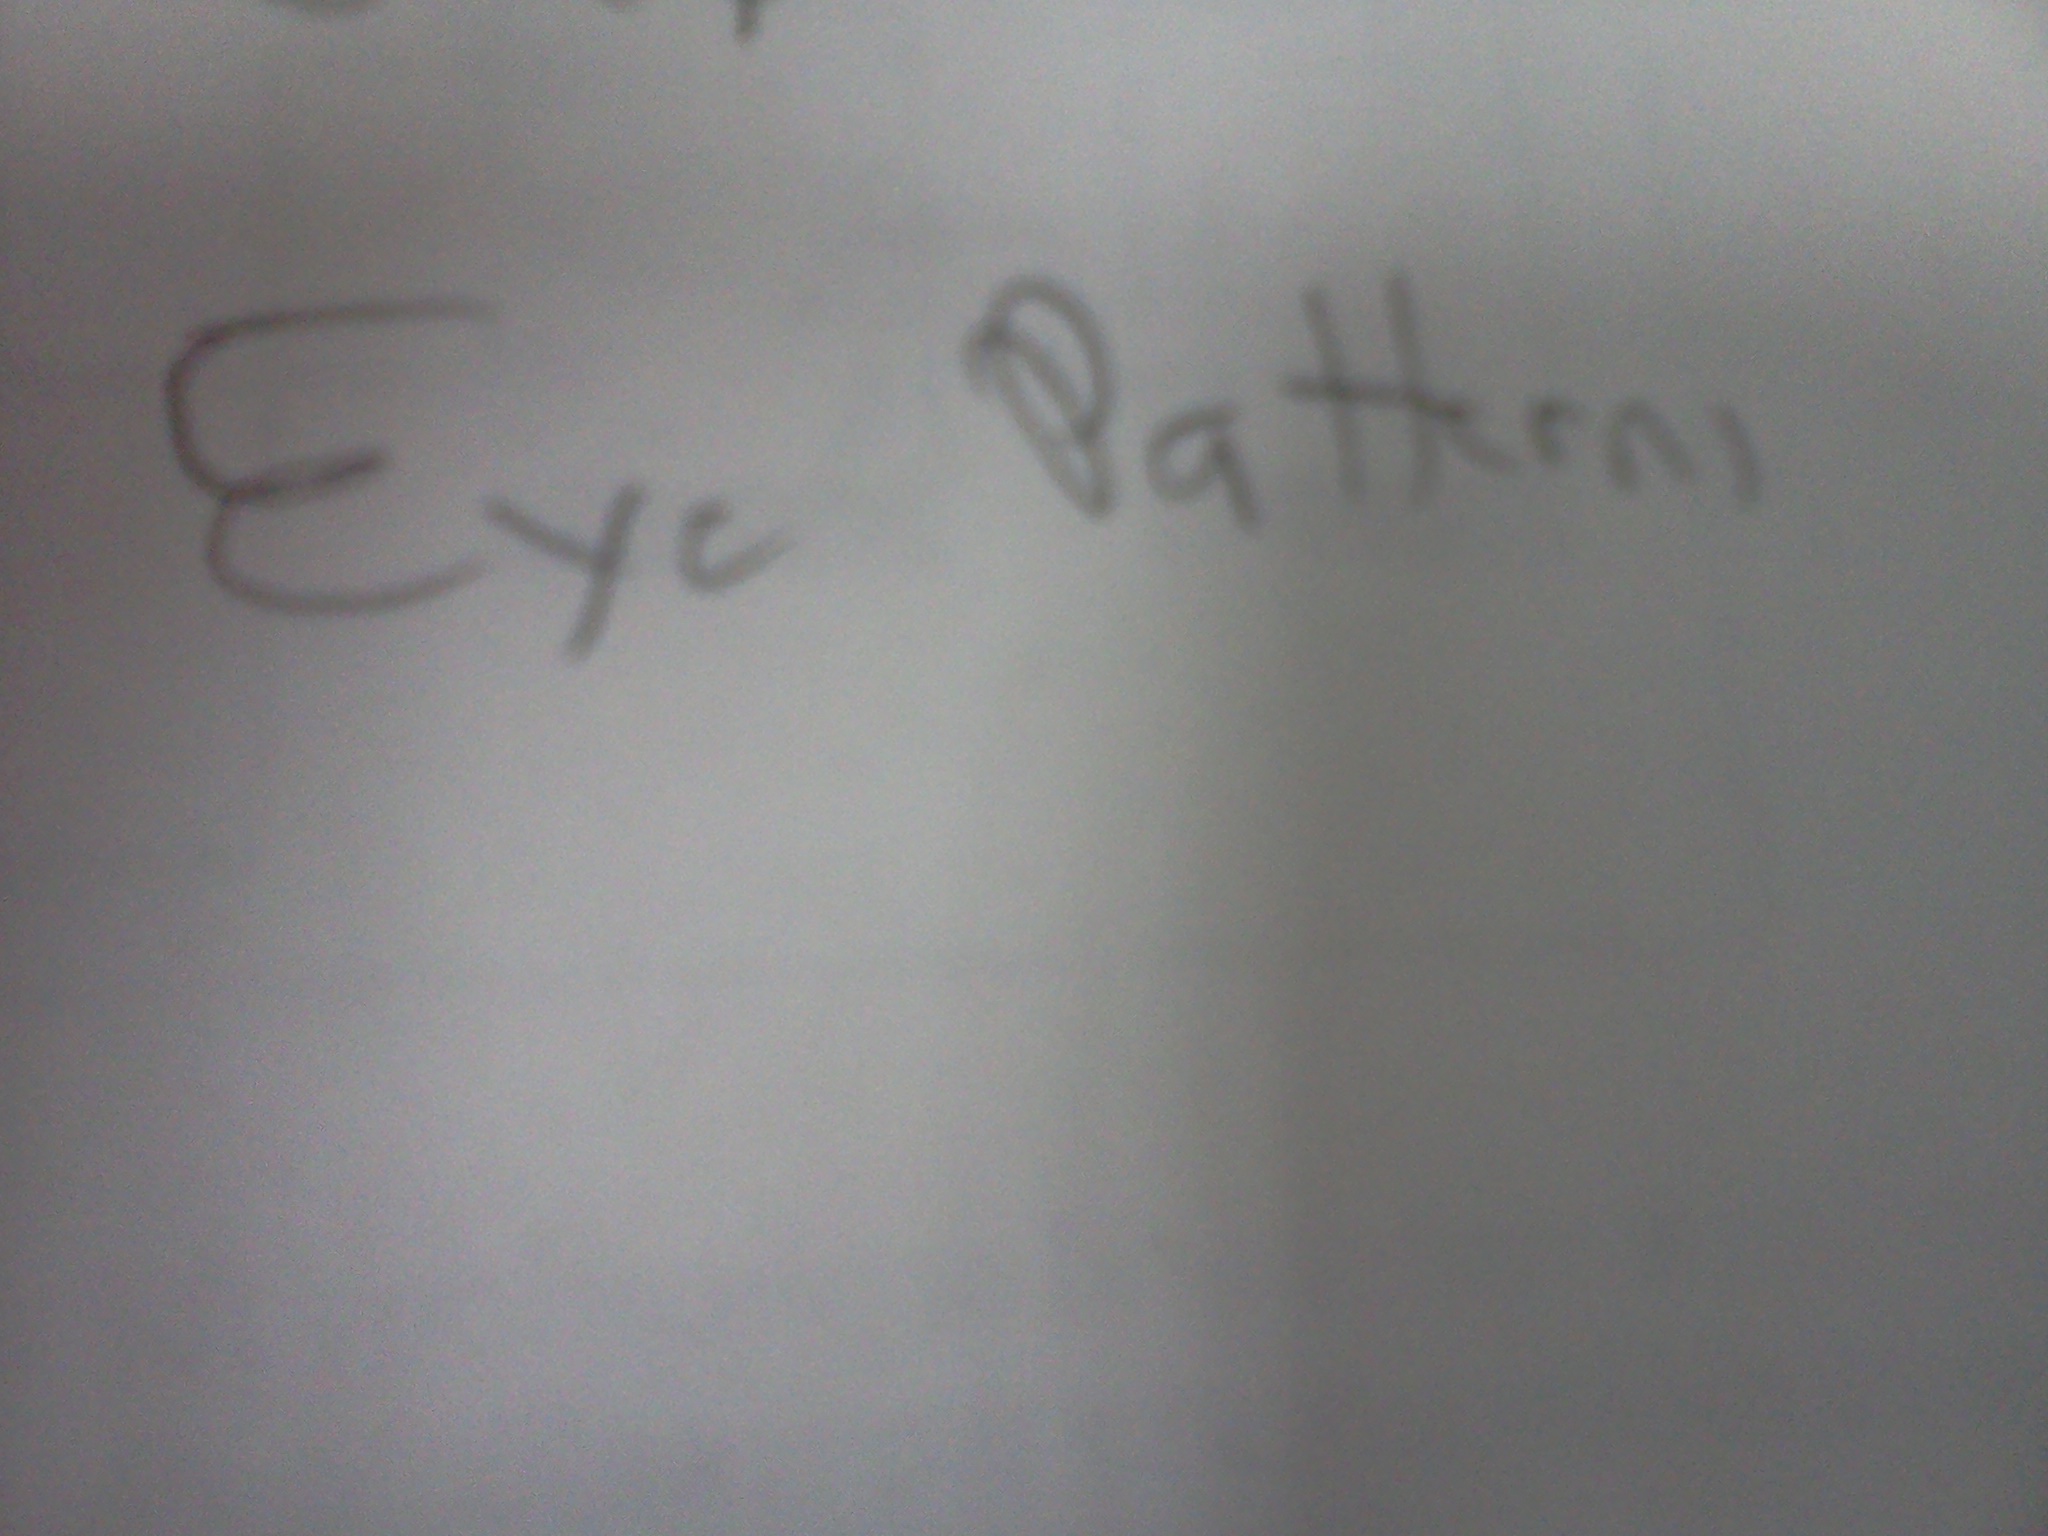 Eye Pattern